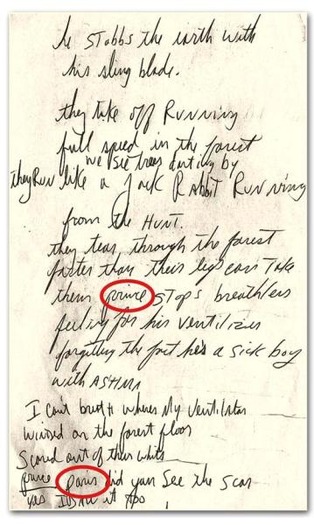 he stabbs the earth with
his sling blade.
they take off Running
full speed in the forest
we see trees darting by
they Run like a Jack Rabbit Running
from the Hunt.
they tear through the forest
faster than their legs can Take
them prince stops breathless
feeling for his ventilizer
forgetting the fact he's a sick boy
with ASThmA
I can't breath wheres My Ventilator
on the forest floor
Scared out of their whits
prince paris did you See the scar
yes I saw it too